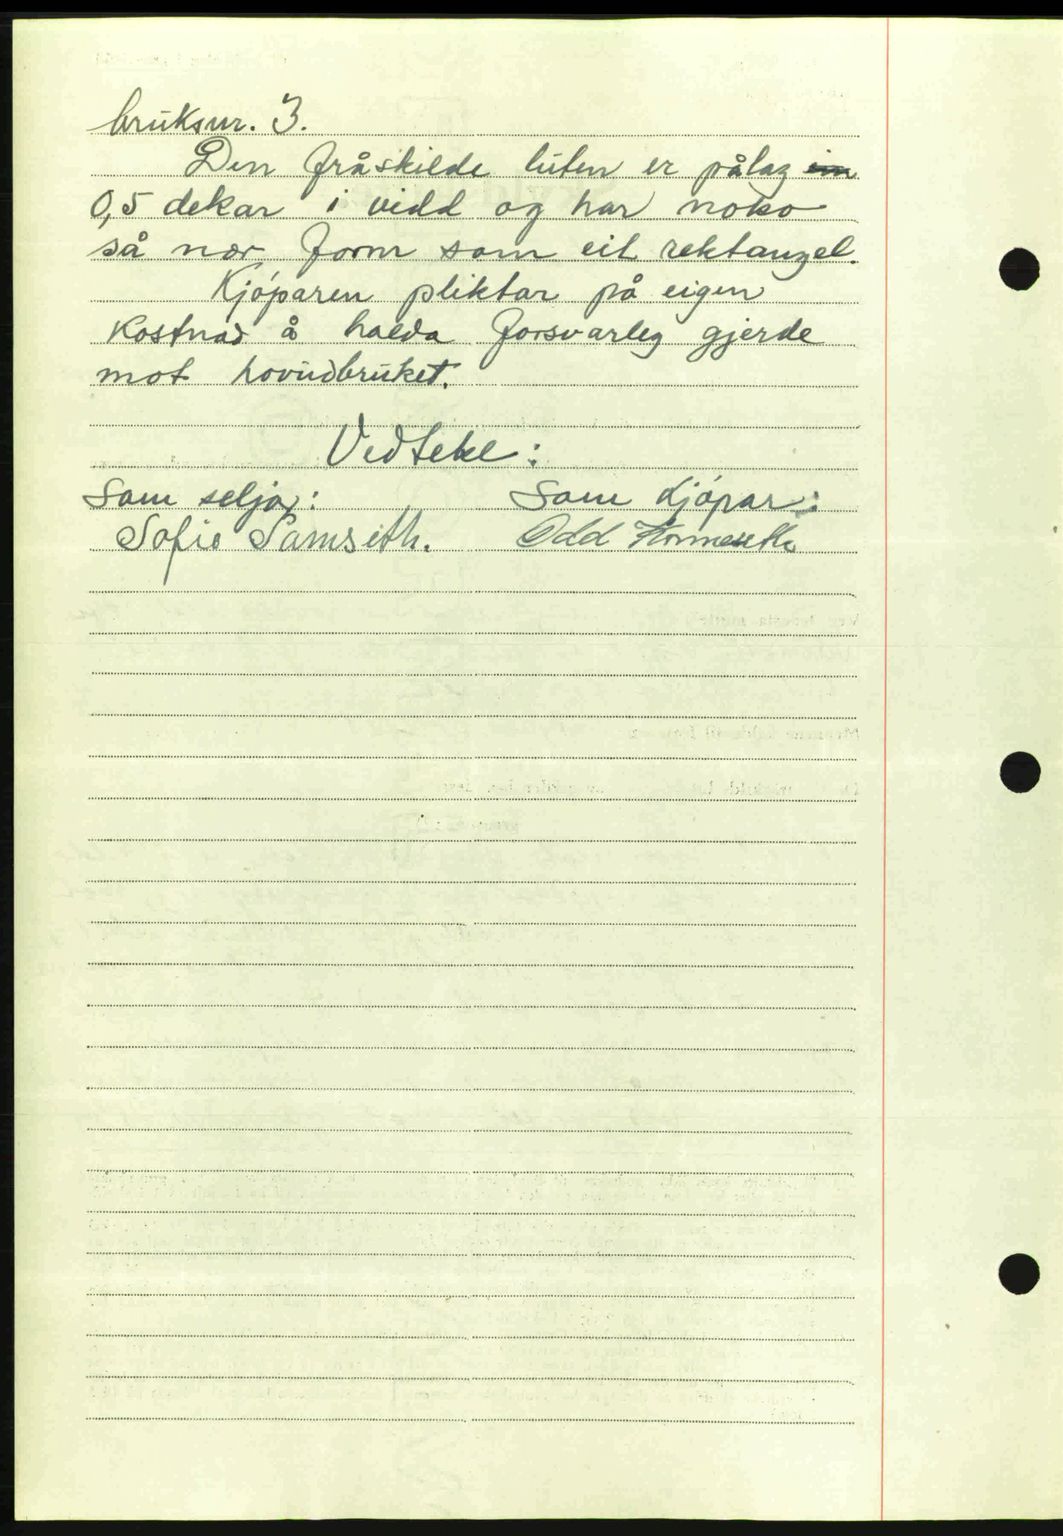 bruksnr. 3.
Den fråskilde luten er pålag
0,5 dekar i vidd og har noko
så nær form som eit rektangel.
Kjóparen pliktar på eigen
kostnad å halda forsvarleg gjerde
mot hovudbruket.
Vedteke:
Som seljar: Som kjópar:
Sofie Samseth. Odd